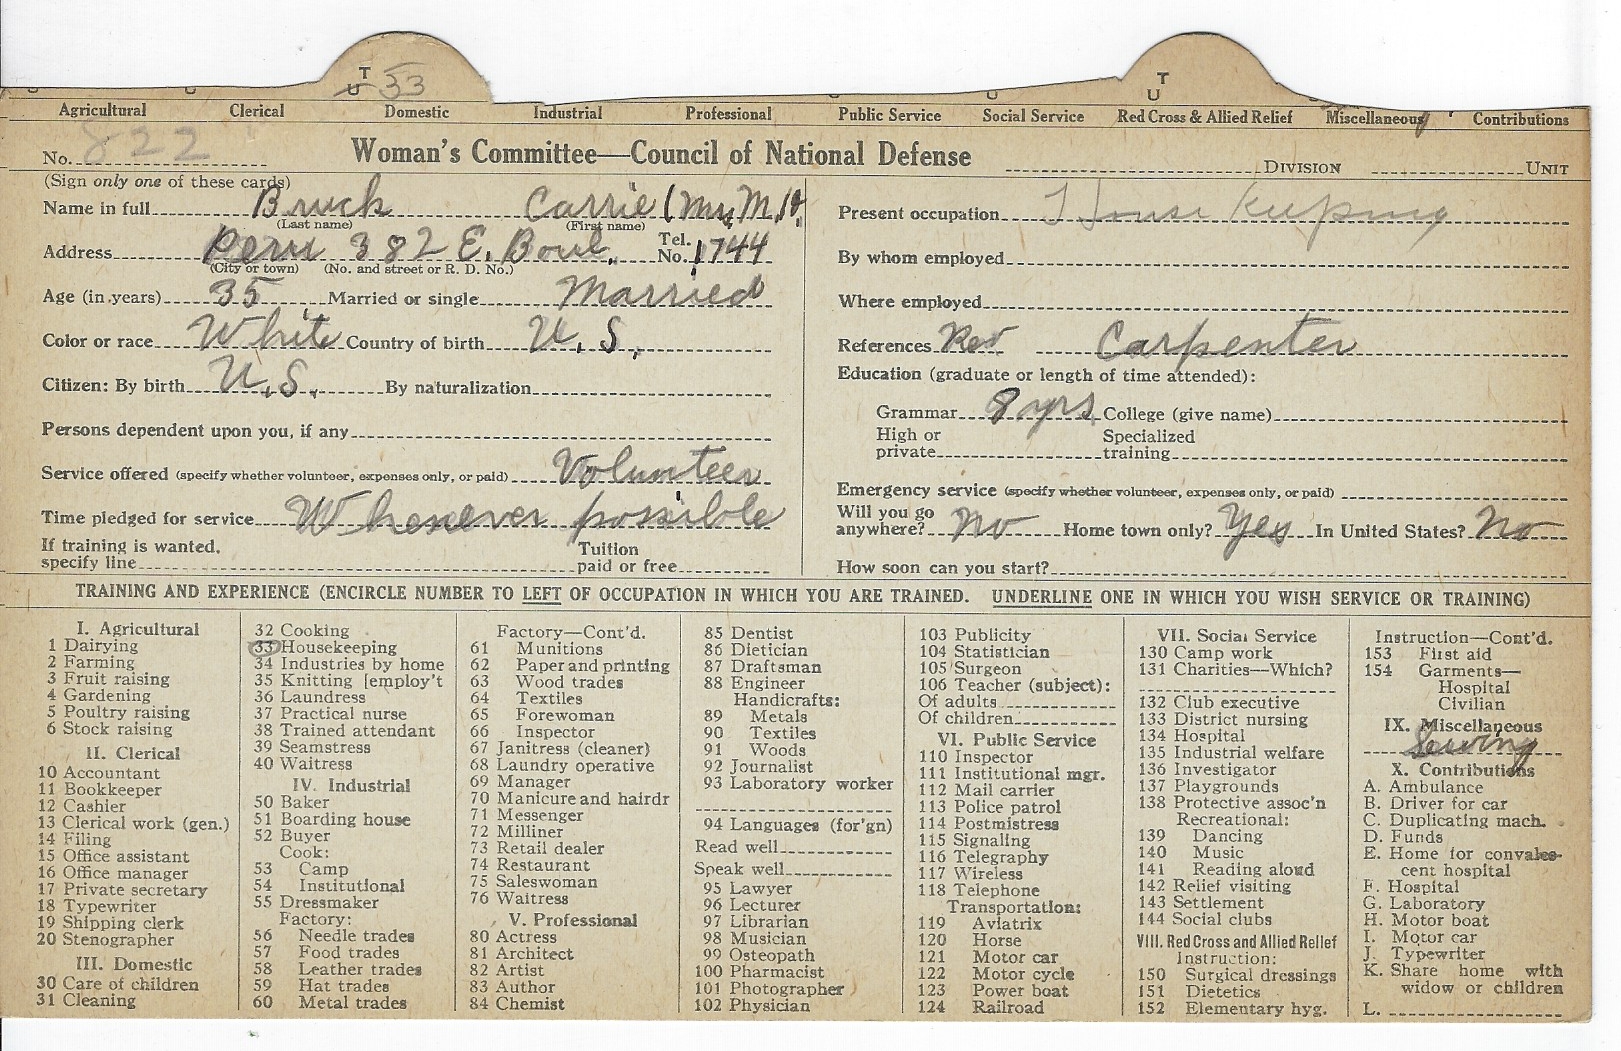 T
U 33
T
U
Agricultural Clerical Domestic Industrial Professional Public Service Social Service Red Cross & Allied Relief Miscellaneous Contributions
No. 822 Woman's Committee—Council of National Defense DIVISION UNIT
(Sign only one of these cards)
Name in full Bruck Carrie (Mrs. M.
(Last name) (First name)
Address Peru 382 E. Boul. Tel. No. 1744
(City or town) (No. and street or R. D. No.)
Age (in years) 35 Married or single Married
Color or race White Country of birth U. S.
Citizen: By birth U.S. By naturalization
Persons dependent upon you, if any
Service offered (specify whether volunteer, expenses only, or paid) Volunteer
Time pledged for service Whenever possible
If training is wanted, specify line Tuition paid or free
Present occupation House Keeping
By whom employed
Where employed
References Rev Carpenter
Education (graduate or length of time attended):
Grammar 8 yrs College (give name)
High or private Specialized training
Emergency service (specify whether volunteer, expenses only, or paid)
Will you go anywhere? No Home town only? Yes In United States? No
How soon can you start?
TRAINING AND EXPERIENCE (ENCIRCLE NUMBER TO LEFT OF OCCUPATION IN WHICH YOU ARE TRAINED. UNDERLINE ONE IN WHICH YOU WISH SERVICE OR TRAINING)
I. Agricultural
1 Dairying
2 Farming
3 Fruit raising
4 Gardening
5 Poultry raising
6 Stock raising
II. Clerical
10 Accountant
11 Bookkeeper
12 Cashier
13 Clerical work (gen.)
14 Filing
15 Office assistant
16 Office manager
17 Private secretary
18 Typewriter
19 Shipping clerk
20 Stenographer
III. Domestic
30 Care of children
31 Cleaning
32 Cooking
33 Housekeeping
34 Industries by home
35 Knitting [employ't
36 Laundress
37 Practical nurse
38 Trained attendant
39 Seamstress
40 Waitress
IV. Industrial
50 Baker
51 Boarding house
52 Buyer
Cook:
53 Camp
54 Institutional
55 Dressmaker
Factory:
56 Needle trades
57 Food trades
58 Leather trades
59 Hat trades
60 Metal trades
Factory—Cont'd.
61 Munitions
62 Paper and printing
63 Wood trades
64 Textiles
65 Forewoman
66 Inspector
67 Janitress (cleaner)
68 Laundry operative
69 Manager
70 Manicure and hairdr
71 Messenger
72 Milliner
73 Retail dealer
74 Restaurant
75 Saleswoman
76 Waitress
V. Professional
80 Actress
81 Architect
82 Artist
83 Author
84 Chemist
85 Dentist
86 Dietician
87 Draftsman
88 Engineer
Handicrafts:
89 Metals
90 Textiles
91 Woods
92 Journalist
93 Laboratory worker
94 Languages (for'gn)
Read well
Speak well
95 Lawyer
96 Lecturer
97 Librarian
98 Musician
99 Osteopath
100 Pharmacist
101 Photographer
102 Physician
103 Publicity
104 Statistician
105 Surgeon
106 Teacher (subject):
Of adults
Of children
VI. Public Service
110 Inspector
111 Institutional mgr.
112 Mail carrier
113 Police patrol
114 Postmistress
115 Signaling
116 Telegraphy
117 Wireless
118 Telephone
Transportation:
119 Aviatrix
120 Horse
121 Motor car
122 Motor cycle
123 Power boat
124 Railroad
VII. Social Service
130 Camp work
131 Charities—Which?
132 Club executive
133 District nursing
134 Hospital
135 Industrial welfare
136 Investigator
137 Playgrounds
138 Protective assoc'n
Recreational:
139 Dancing
140 Music
141 Reading aloud
142 Relief visiting
143 Settlement
144 Social clubs
VIII. Red Cross and Allied Relief
Instruction:
150 Surgical dressings
151 Dietetics
152 Elementary hyg.
Instruction—Cont'd.
153 First aid
154 Garments—
Hospital
Civilian
IX. Miscellaneous
Sewing
X. Contributions
A. Ambulance
B. Driver for car
C. Duplicating mach.
D. Funds
E. Home for convales-
cent hospital
F. Hospital
G. Laboratory
H. Motor boat
I. Motor car
J. Typewriter
K. Share home with
widow or children
L.